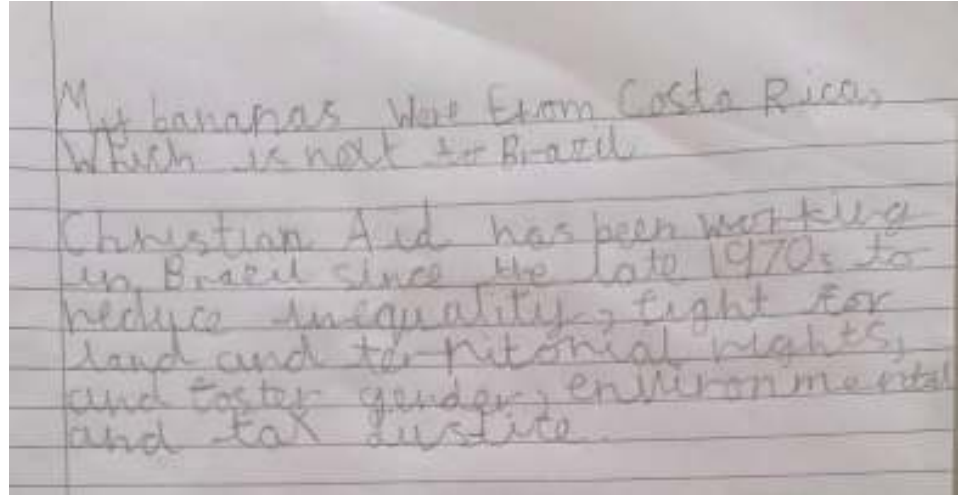 My bananas Were From Costa Rica,
Which is next to Brazil
Christian Aid has been working
in Brazil since the late 1970s to
reduce inequality, fight for
land and territorial rights,
and foster gender, environmental
and tax justice.